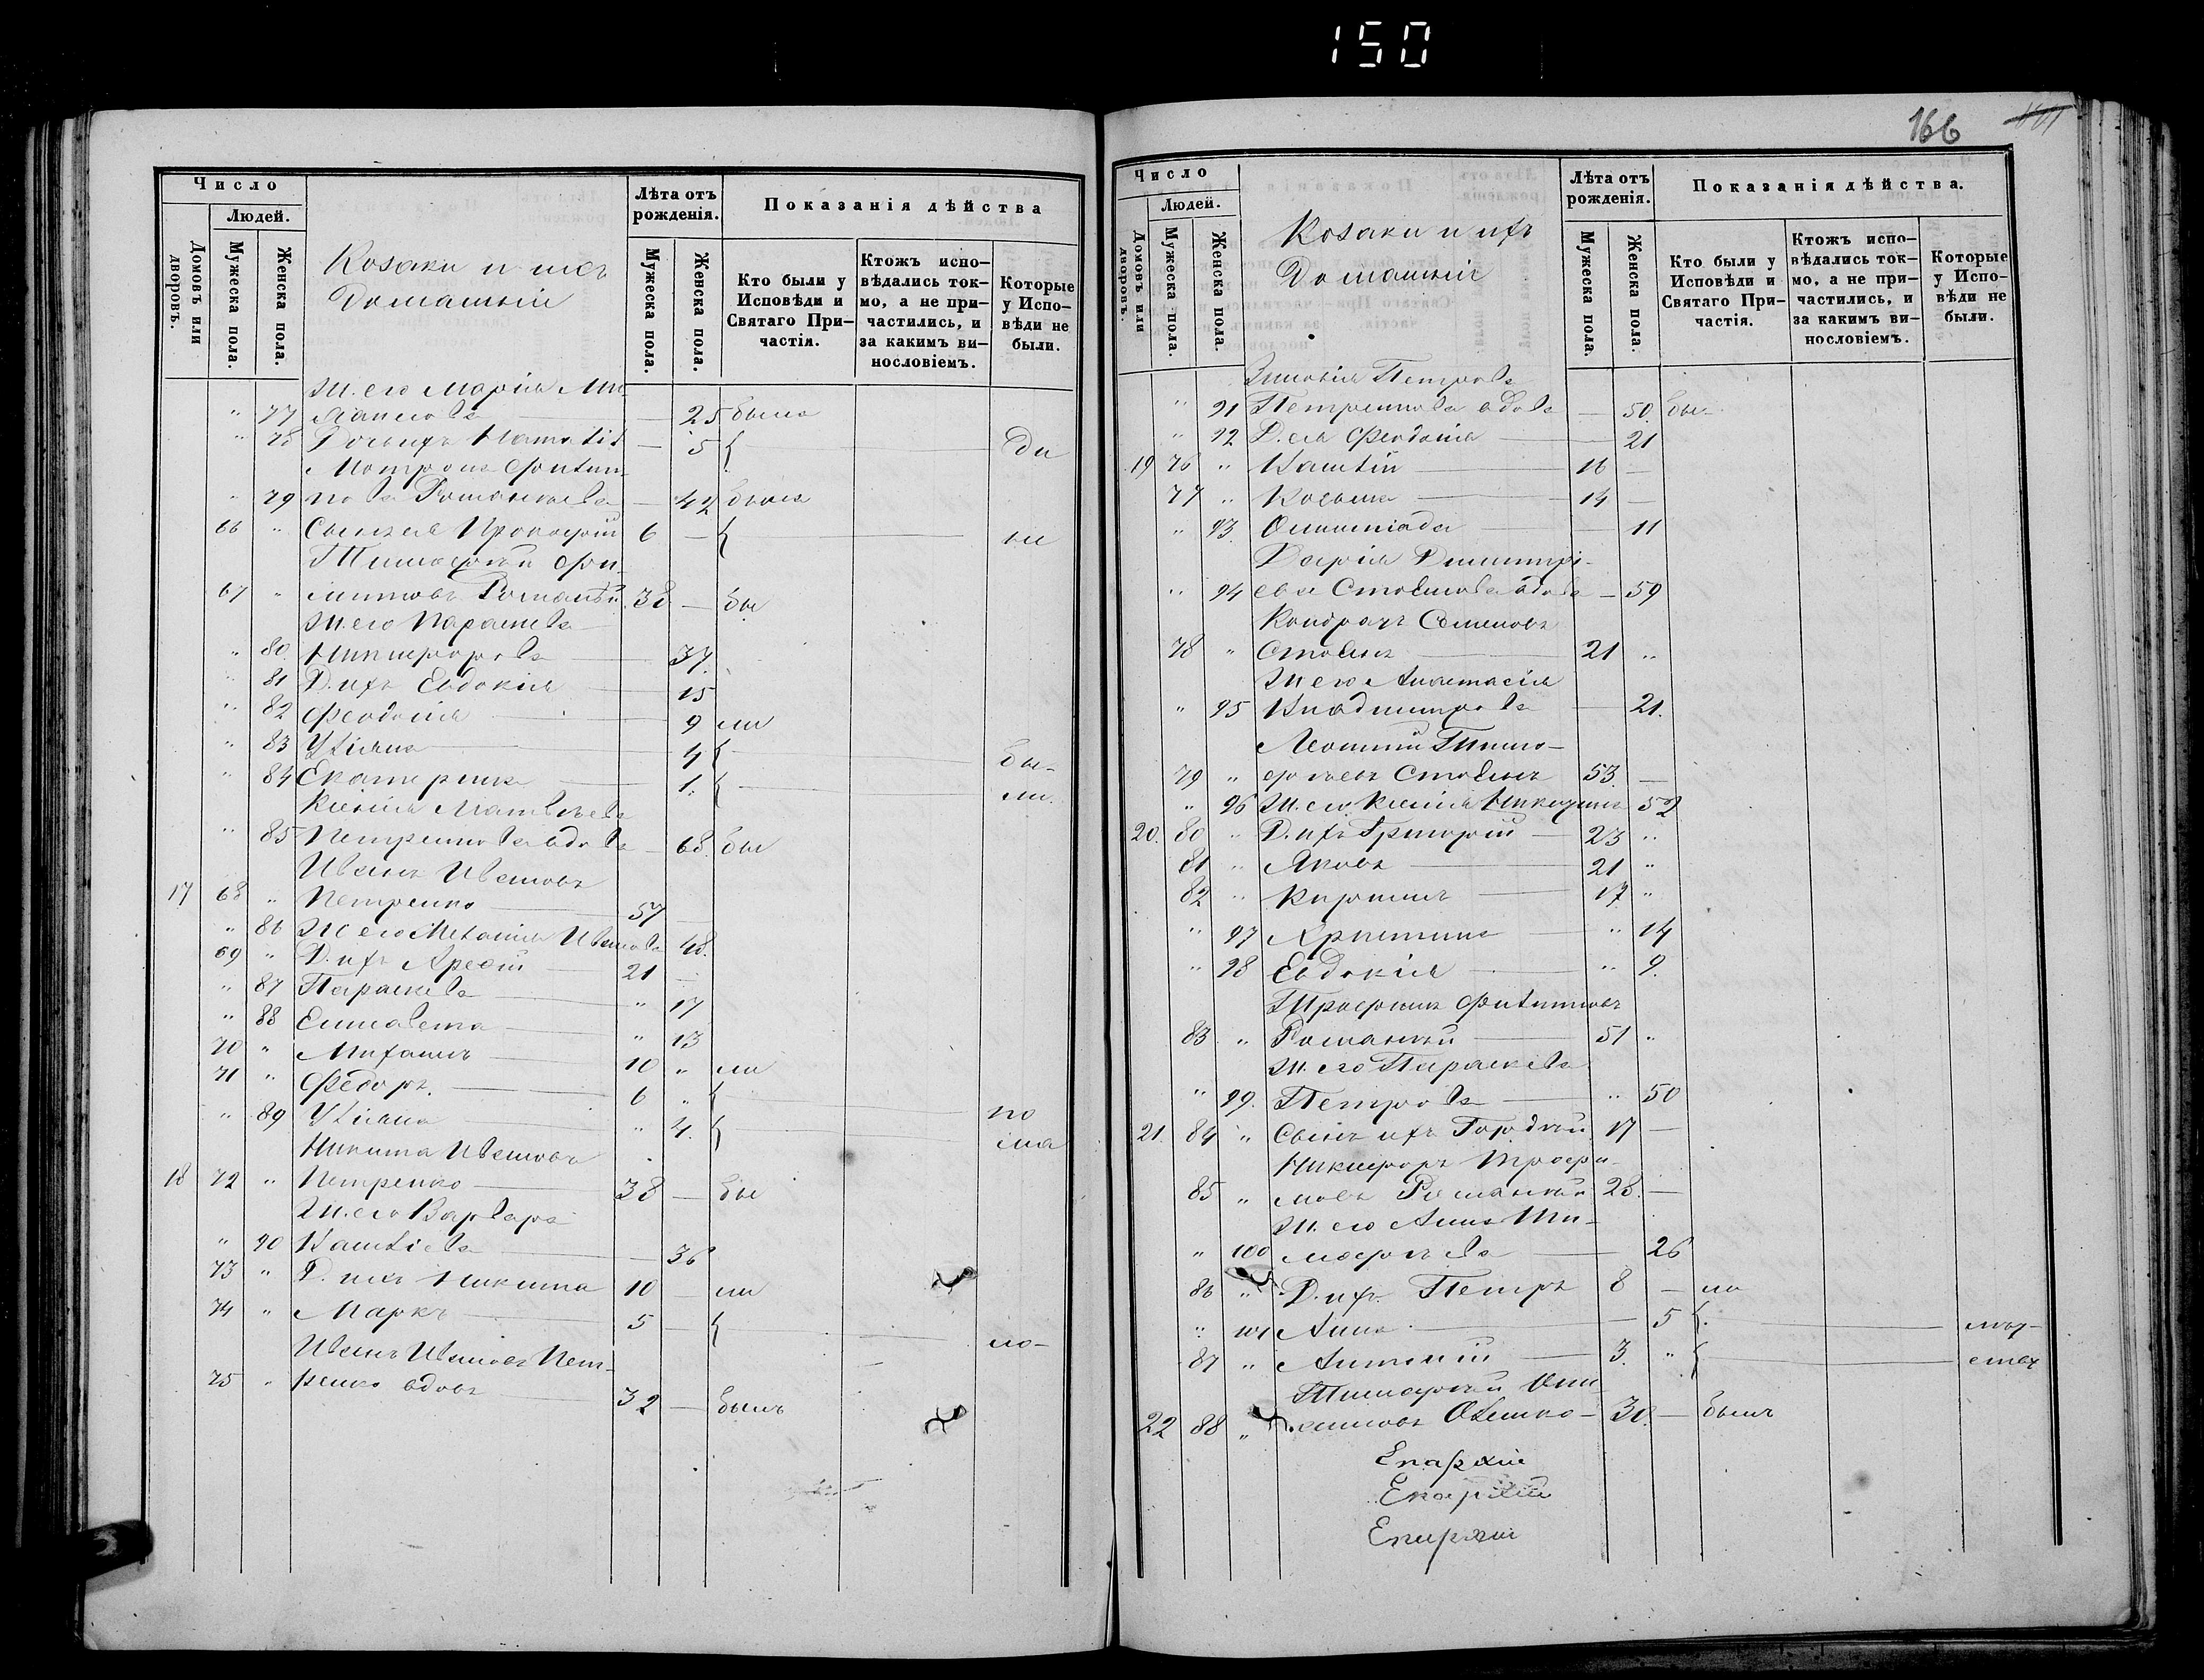 150
166
Число
Людей.
Домовъ или дворовъ.
Мужеска пола.
Женска пола.
Козаки и ихъ
Домашніи
Лѣта отъ рожденія.
Мужеска пола.
Женска пола.
Показанія дѣйства
Кто были у Исповѣди и Святаго При-частія.
Ктожъ испо-вѣдались ток-мо, а не при-частились, и за какимъ ви-нословіемъ.
Которые у Испо-вѣди не были.
Ж. его Марія Ми-
" 77 — 25 была
" 78 — 5
79 Романькова — 42 была
66 " Сынъ ея Прокофій 6 —
Тимофей Фи-
67 " липовъ Романькій 38 — бы
Ж. его Параскева
" 80 Никифорова 37
" 81 Д. ихъ Евдокія 15
" 82 Феодосія 9 ли
" 83 Уліана 4 бы-
" 84 Екатерина 1 ли.
Ксенія Матвѣева
" 85 Петренкова вдова — 68 бы
Иванъ Ивановъ
17 68 " Петренко 57 —
" 86 Ж его Меланія Иванова 48
69 " Д. ихъ 21 —
" 87 Параскева " 17
" 88 Елисавета " 13
70 " Михаилъ 10 " ли
71 " Федоръ 6 "
" 89 Уліана " 4
Никита Ивановъ
18 72 " Петренко 38 — бы
Ж. его Варвара
" 90 — 36
73 " Д. ихъ Никита 10 — ли
74 " Маркъ 5 —
Иванъ Ивановъ Пет-
75 " ренко вдовъ 32 — былъ
Число
Людей.
Домовъ или дворовъ.
Мужеска пола.
Женска пола.
Козаки и ихъ
Домашніи
Лѣта отъ рожденія.
Мужеска пола.
Женска пола.
Показанія дѣйства.
Кто были у Исповѣди и Святаго При-частія.
Ктожъ испо-вѣдались ток-мо, а не при-частились, и за какимъ ви-нословіемъ.
Которые у Испо-вѣди не были.
Зиновія Петрова
" 91 Петренкова вдова — 50 бы-
" 92 Д. ея Феодосія — 21
19 76 " 16 —
77 " Косьма 14 —
" 93 Олимпіада — 11
Дарія Димитрі-
" 94 ева вдова — 59
Кондратъ Семеновъ
78 " 21 "
Ж его Анастасія
" 95 — 21.
Леонтій Тимо-
79 " фѣевъ 53 —
" 96 Ж. его Ксенія 52
20. 80 " Д. ихъ Григорій 23 "
81 " Яковъ 21 "
82 " Кирилъ 17 "
" 97 Христина " 14
" 98 Евдокія " 9
Трофимъ Филиповъ
83 " Романькій 51 "
Ж. его Параскева
" 99 Петрова " 50
21. 84 " Сынъ ихъ Гордѣй 17 —
Никифоръ Трофи-
85 " мовъ Романькій 28 —
Ж. его Анна Ти-
" 100 мофѣева 26
86 " Д. ихъ Петръ 8 — ли
" 101 Анна — 5
87 " Антоній 3 "
Тимофей
22 88 " — былъ
Епархіи
Епархіи
Епархіи